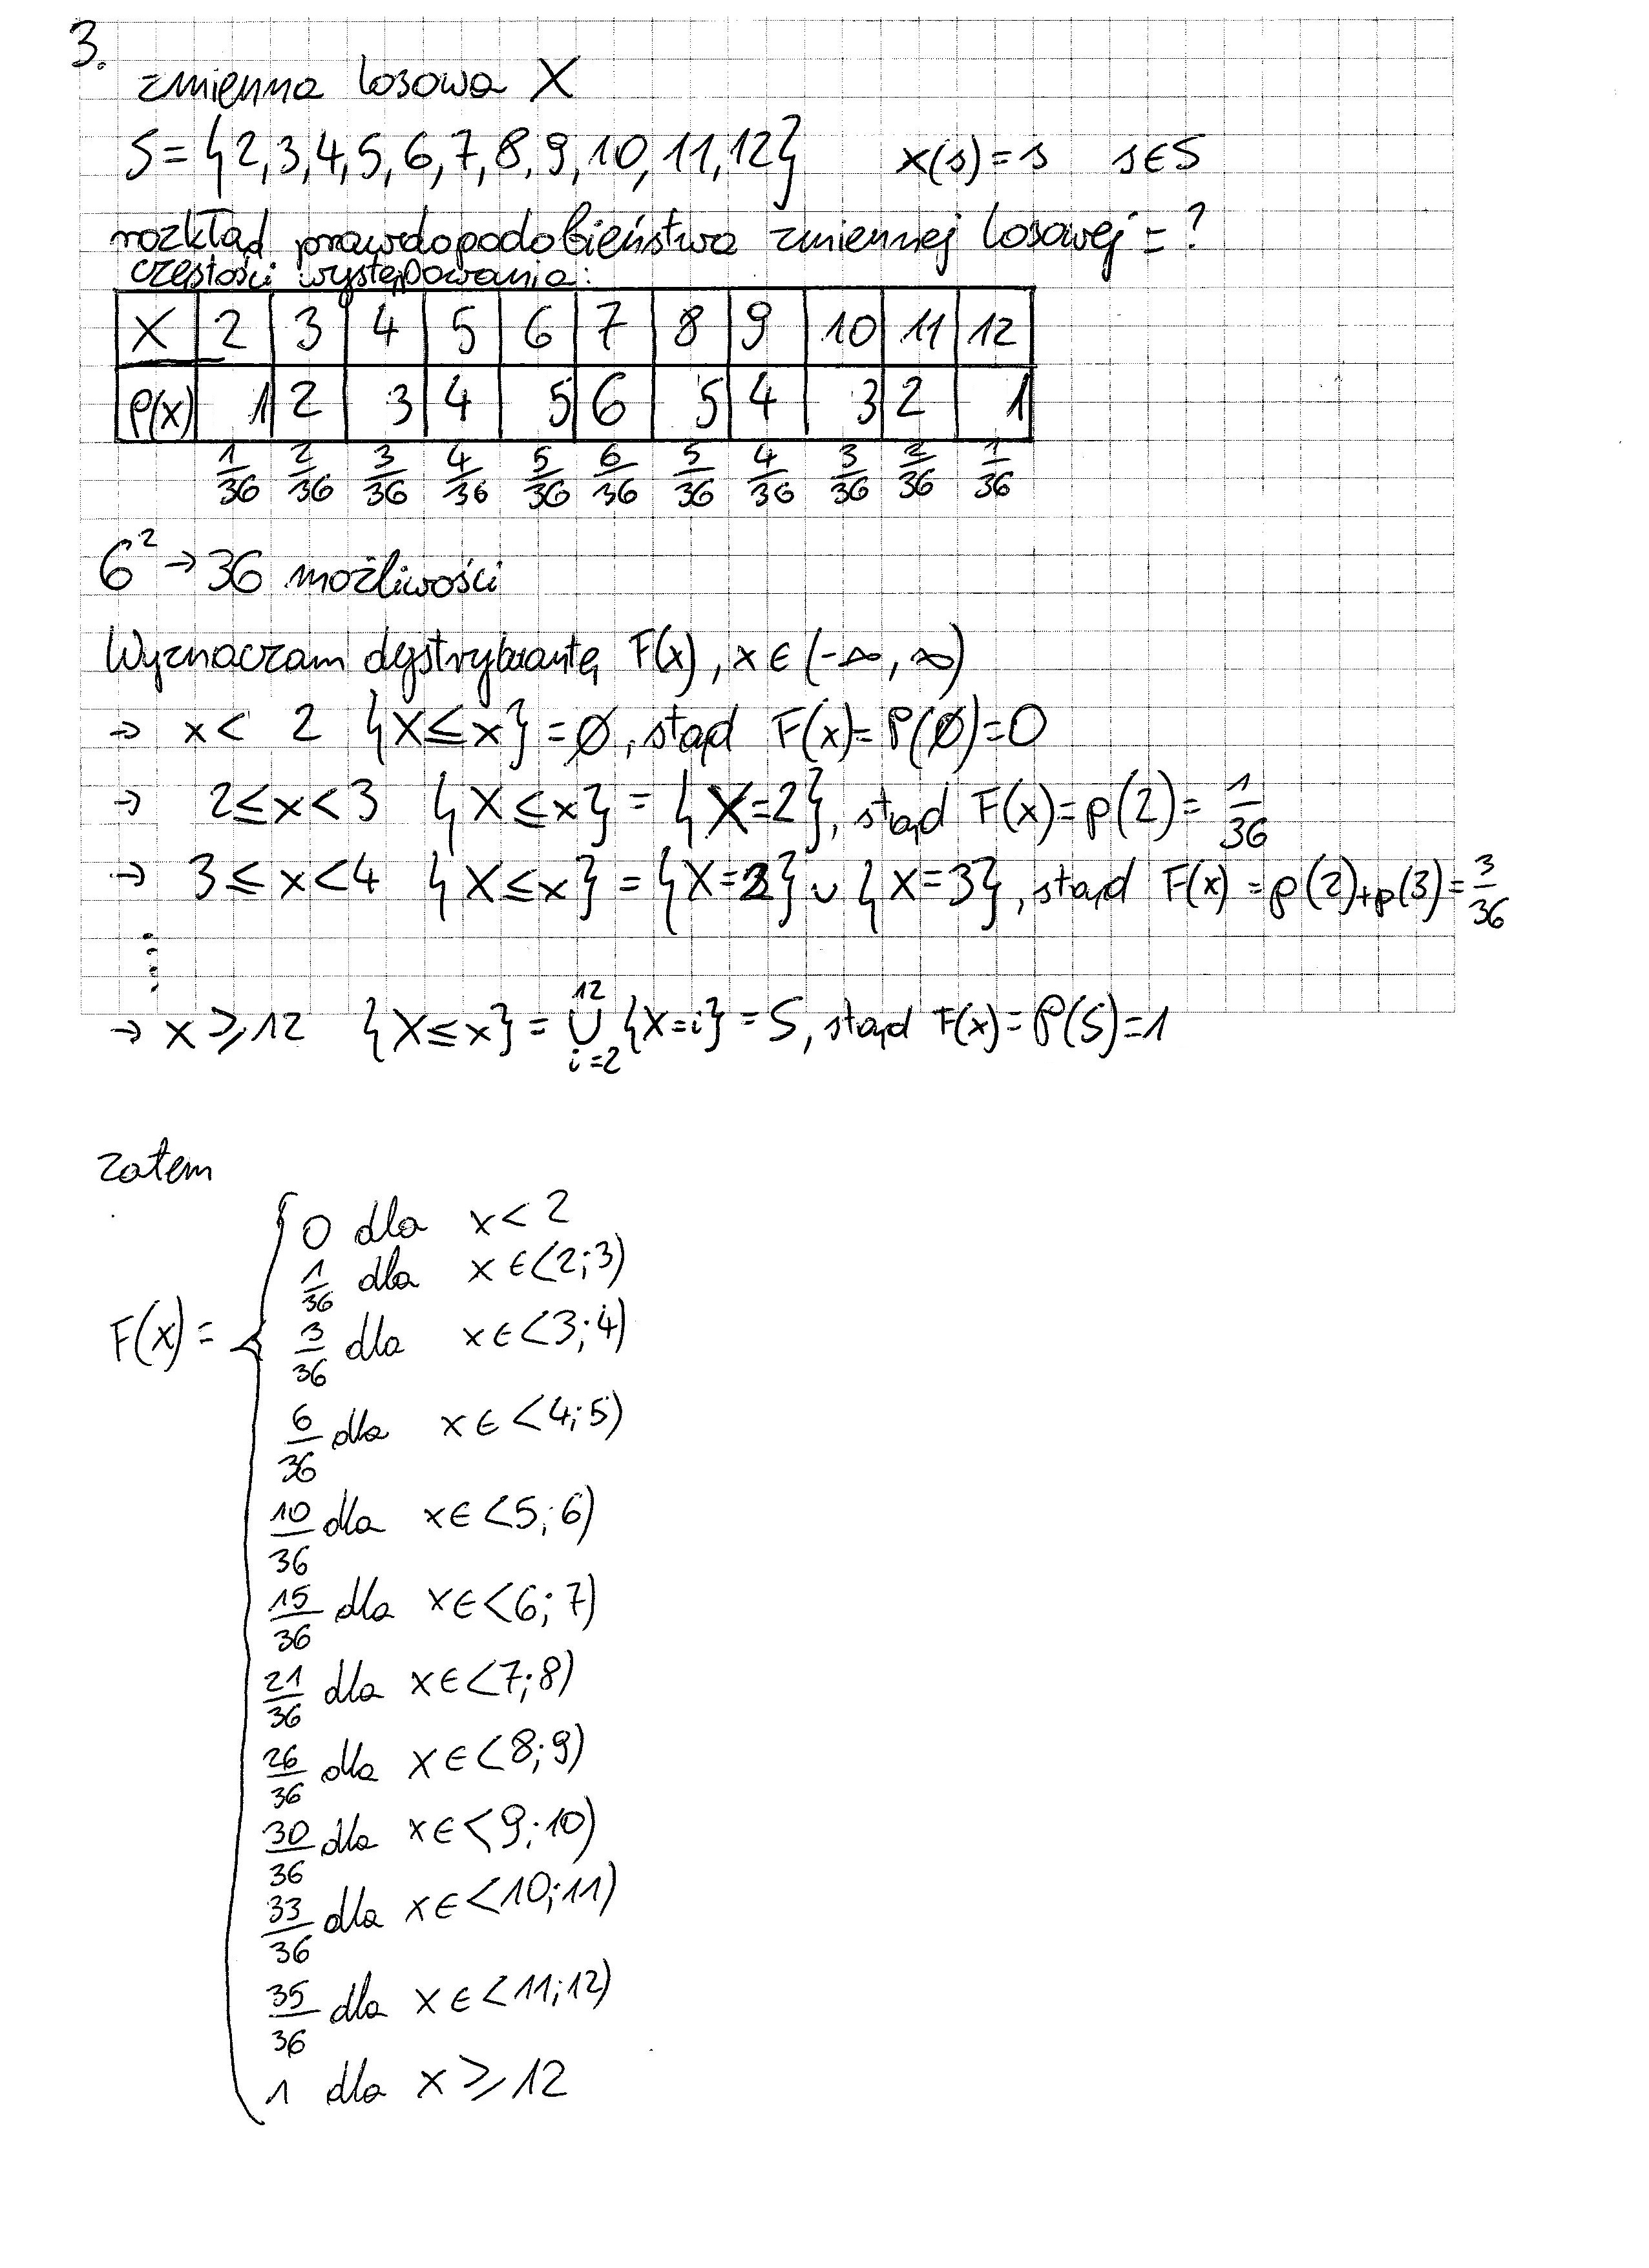 3.
zmienna losowa X
S = {2,3,4,5,6,7,8,9,10,11,12} x(s) = s s∈S
rozkład prawdopodobieństwa zmiennej losowej = ?
częstości występowania:
X 2 3 4 5 6 7 8 9 10 11 12
P(x) 1 2 3 4 5 6 5 4 3 2 1
1/36 2/36 3/36 4/36 5/36 6/36 5/36 4/36 3/36 2/36 1/36
6² → 36 możliwości
Wyznaczam dystrybuantę F(x), x ∈ (-∞, ∞)
→ x < 2 {X ≤ x} = ∅, stąd F(x) = P(∅) = 0
→ 2 ≤ x < 3 {X ≤ x} = {X=2}, stąd F(x) = p(2) = 1/36
→ 3 ≤ x < 4 {X ≤ x} = {X=2} ∪ {X=3}, stąd F(x) = p(2)+p(3) = 3/36
⋮
→ x ≥ 12 {X ≤ x} = ⋃_{i=2}^{12} {X=i} = S, stąd F(x) = P(S) = 1
zatem
0 dla x < 2
1/36 dla x ∈ <2;3)
F(x) = { 3/36 dla x ∈ <3;4)
6/36 dla x ∈ <4;5)
10/36 dla x ∈ <5;6)
15/36 dla x ∈ <6;7)
21/36 dla x ∈ <7;8)
26/36 dla x ∈ <8;9)
30/36 dla x ∈ <9;10)
33/36 dla x ∈ <10;11)
35/36 dla x ∈ <11;12)
1 dla x ≥ 12